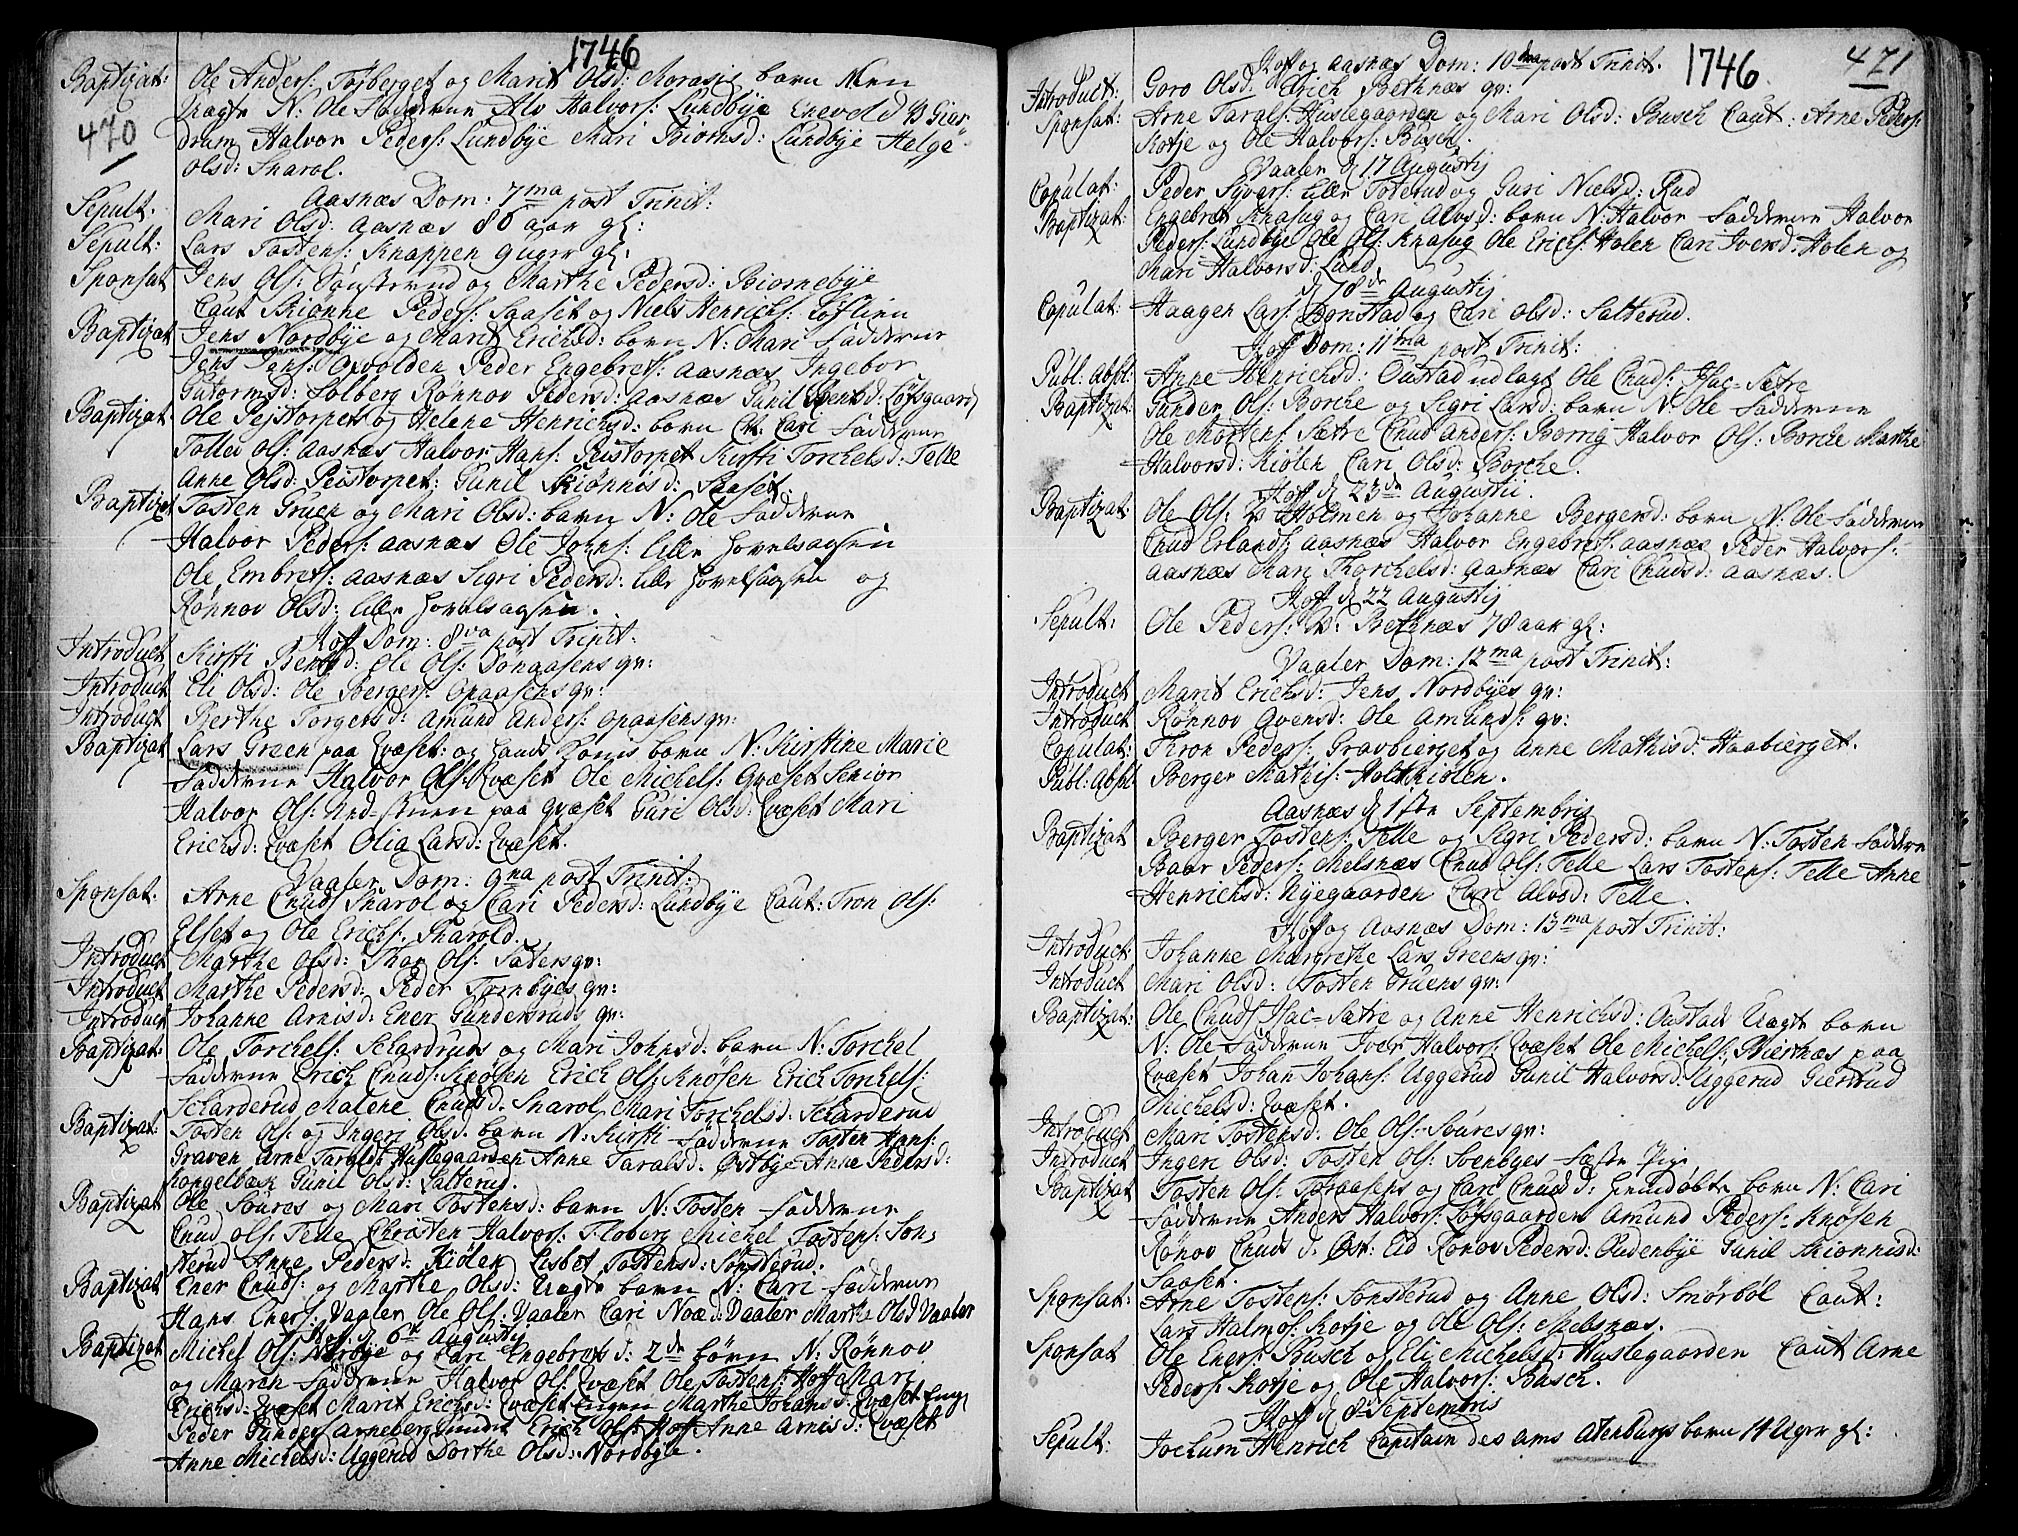 1746
470
Baptizat: Ole Anders: Tosberget og Marit Olsd: Morasig barn
N: Ole Fadderne Alv Halvors: Lundbye Enevold
drum Halvor Peders: Lundbye Mari Biörnsd: Lundbye Helge
Olsd: Snarol.
Aasnæs Dom: 7ma post Trinit:
Sepult: Mari Olsd: Aasnæs 86 aar gl:
Sepult: Lars Tostens: Knappen 9 uger gl:
Sponsat Jens Ols: Sönsterud og Marthe Pedersd: Biornebye
Caut Skiönne Peders: Saaset og Niels Henrichs: Löflien
Baptizat Jens Nordbye og Marit Erichsd: barn N: Mari Fadderne
Jens Jens: Oxvolden Peder Engebrets: Aasnæs Ingebor
Gutormsd: Solberg Rönnov Pedersd: Aasnæs Gunil Löfsgaard
Baptizat Ole Peistorpet og Helene Henrichsd: barn N. Cari Fadderne
Tollev Ols: Aasnæs Halvor Hans: Peistorpet Kirsti Torchelsd: Telle
Anne Olsd: Peistorpet: Gunil Skiönnesd: Saaset
Baptizat Tosten Gruen og Mari Olsd: barn N: Ole Fadderne
Halvor Peders: Aasnæs Ole Johns: lille Hovelsaasen
Ole Embrets: Aasnæs Sigri Pedersd: lille Hovelsaasen og
Rönnov Olsd: lille Hovelsaasen.
Hoff Dom: 8va post Trinit:
Introduct Kirsti Bentsd: Ole Ols: Sönaasens qv:
Introduct Eli Olsd: Ole Bergers: Opaasens qv:
Introduct Berthe Torgersd: Amund Anders: Opaasens qv:
Baptizat Lars Green paa Qvæset: og Hands Konis barn N: Kirstine Marie
Fadderne Halvor Ols: Qvæset Ole Michels: Qvæset Senior
Halvor Ols: Und-Stuen paa Qvæset Guri Olsd: Qvæset Mari
Erichsd: Qvæset Olia Larsd: Qvæset.
Vaaler Dom: 9na post Trinit:
Sponsat: Arne Cnuds: Snarol og Cari Pedersd: Lundbye Caut: Tron Ols:
Elset og Ole Erichs: Snarold.
Introduct Marthe Olsd: Thor Ols: Sæters qv:
Introduct Marthe Pedersd: Peder Tornbyes qv:
Introduct Johanne Arnisd: Ener Gundersruds qv:
Baptizat: Ole Torchels: Scharderuds og Mari Johnsd: barn N: Torchel
Fadderne Erich Cnuds: Knösen Erich Ols: Knösen Erich Torkels:
Scharderud Malene Cnudsd: Snarol, Mari Torchelsd: Scharderud
Baptizat: Tosten Ols: og Ingeri Olsd: barn N: Kirsti Fadderne Tosten Hans:
Graven Arne Taralds: Huslegaarden Anne Taralsd: Östbye Anne Pedersd:
Kongelbæk Gunil Olsd: Salterud.
Baptizat Ole Soures og Mari Tostensd: barn N: Tosten Fadderne
Cnud Ols: Telle Christen Halvors: Floberg Michel Tostens: Söns
terud Anne Pedersd: Kiölen Lisbet Tostensd: Sönsterud.
Baptizat Ener Cnuds: og Marthe Olsd: Uægte barn N: Cari Fadderne
Hans Eners: Vaaler Ole Ols: Vaaler Cari Noæd: Vaaler Marthe Olsd: Vaaler
Hoff d 6te Augusty
Baptizat Michel Ols: Nordbye og Cari Engebretsd: 2de börn N: Rönnov
og Maren Fadderne Halvor Ols: Qvæset Ole Tostens: Hoff Mari
Erichsd: Qvæset Marit Erichsd: Qvæset Marthe Johansd: Qvæset
Peder Gunders: Arneberg Erich Ols: Hoff Anne Arnisd: Qvæset
Anne Michelsd: Uggerud Dorthe Olsd: Nordbye.
1746.
471
Hoff og Aasnæs Dom: 10ma post Trinit.
Introduct: Goro Olsd: Erich Bethnæs qv:
Sponsat: Arne Tarals: Huslegaarden og Mari Olsd: Busch Caut: Arne Peders:
Kotje og Ole Halvors: Busch.
Vaaler d 17 Augusty
Copulat: Peder Syvers: lille Toterud og Guri Nielsd: Rud
Baptizat: Engebret Knasug og Cari Alvsd: barn N: Halvor Fadderne Halvor
Peders: Lundbye Ole Ols: Knasug Ole Erichs: Holen Cari Iversd: Holen og
Mari Halvorsd: Lund.
d 18de Augusty
Copulat: Haagen Lars: Bonstad og Cari Olsd: Salterud.
Hoff Dom: 11ma post Trinit:
Publ: Absl: Anne Henrichsd: Oustad udlagt Ole Cnuds: Hac-Sætre
Baptizat: Gunder Ols: Borche og Sigri Larsd: barn N: Ole Fadderne
Ole Mortens: Sætre Cnud Anders: Borrig Halvor Ols: Borche Marthe
Halvorsd: Kiölen Cari Olsd: Borche.
Hoff d 23de Augustii.
Baptizat: Ole Ols: Holmen og Johanne Bergersd: barn N: Ole Fadderne
Cnud Erlands: Aasnæs Halvor Engebrets: Aasnæs Peder Halvors:
Aasnæs Mari Thorchelsd: Aasnæs Cari Cnudsd: Aasnæs.
Hoff d 22 Augusty
Sepult: Ole Peders: Bethnæs 78 aar gl:
Vaaler Dom: 12ma post Trinit:
Introduct Marit Erichsd: Jens Nordbyes qv:
Introduct Rönnov Qvensd: Ole Amunds: qv:
Copulat: Thron Peders: Gravbierget og Anne Mathisd: Haabierget.
Publ: Absol Berger Mathis: Holtkiölen.
Aasnæs d 1ste Septembris
Baptizat Berger Tostens: Telle og Sigri Pedersd: barn N: Tosten Fadderne
Baar Peders: Melsnæs Cnud Ols: Telle Lars Tostens: Telle Anne
Henrichsd: Nyegaarden Cari Alvsd: Telle.
Hoff og Aasnæs Dom: 13ma post Trinit:
Introduct Johanne Margrethe Lars Greens qv:
Introduct Mari Olsd: Tosten Gruens qv:
Baptizat: Ole Cnuds: Hac-Sætre og Anne Henrichsd: Oustad Uægt barn
N: Ole Fadderne Iver Halvors: Qvæset Ole Michels: Biertnæs paa
Qvæset Johan Johans: Uggerud Gunil Halvorsd: Uggerud Giertrud
Michelsd: Qvæset.
Introduct Mari Tostensd: Ole Ols: Soures qv:
Introduct Ingeri Olsd: Tosten Ols: Svenbyes Fæste Pige
Baptizat Tosten Ols: Toraasens og Cari Cnudsd: hiemdöbte barn N: Cari
Fadderne Anders Halvors: Löfsgaarden Amund Peders: Knösen
Rönov Cnudsd: Öst: Eid Ronov Pedersd: Oudenbye Gunil Skionnisd:
Saaset.
Sponsat: Arne Tostens: Sonsterud og Anne Olsd: Smörböl Caut:
Lars Halmos: Kotje og Ole Ols: Melsnæs.
Sponsat Ole Eners: Busch og Eli Michelsd: Huslegaarden Caut Arne
Peders: Kotje og Ole Halvors: Busch.
Hoff d 8de Septembris
Sepult: Jochum Henrich Capitain des ams Atenburgs barn 14 Uger gl: